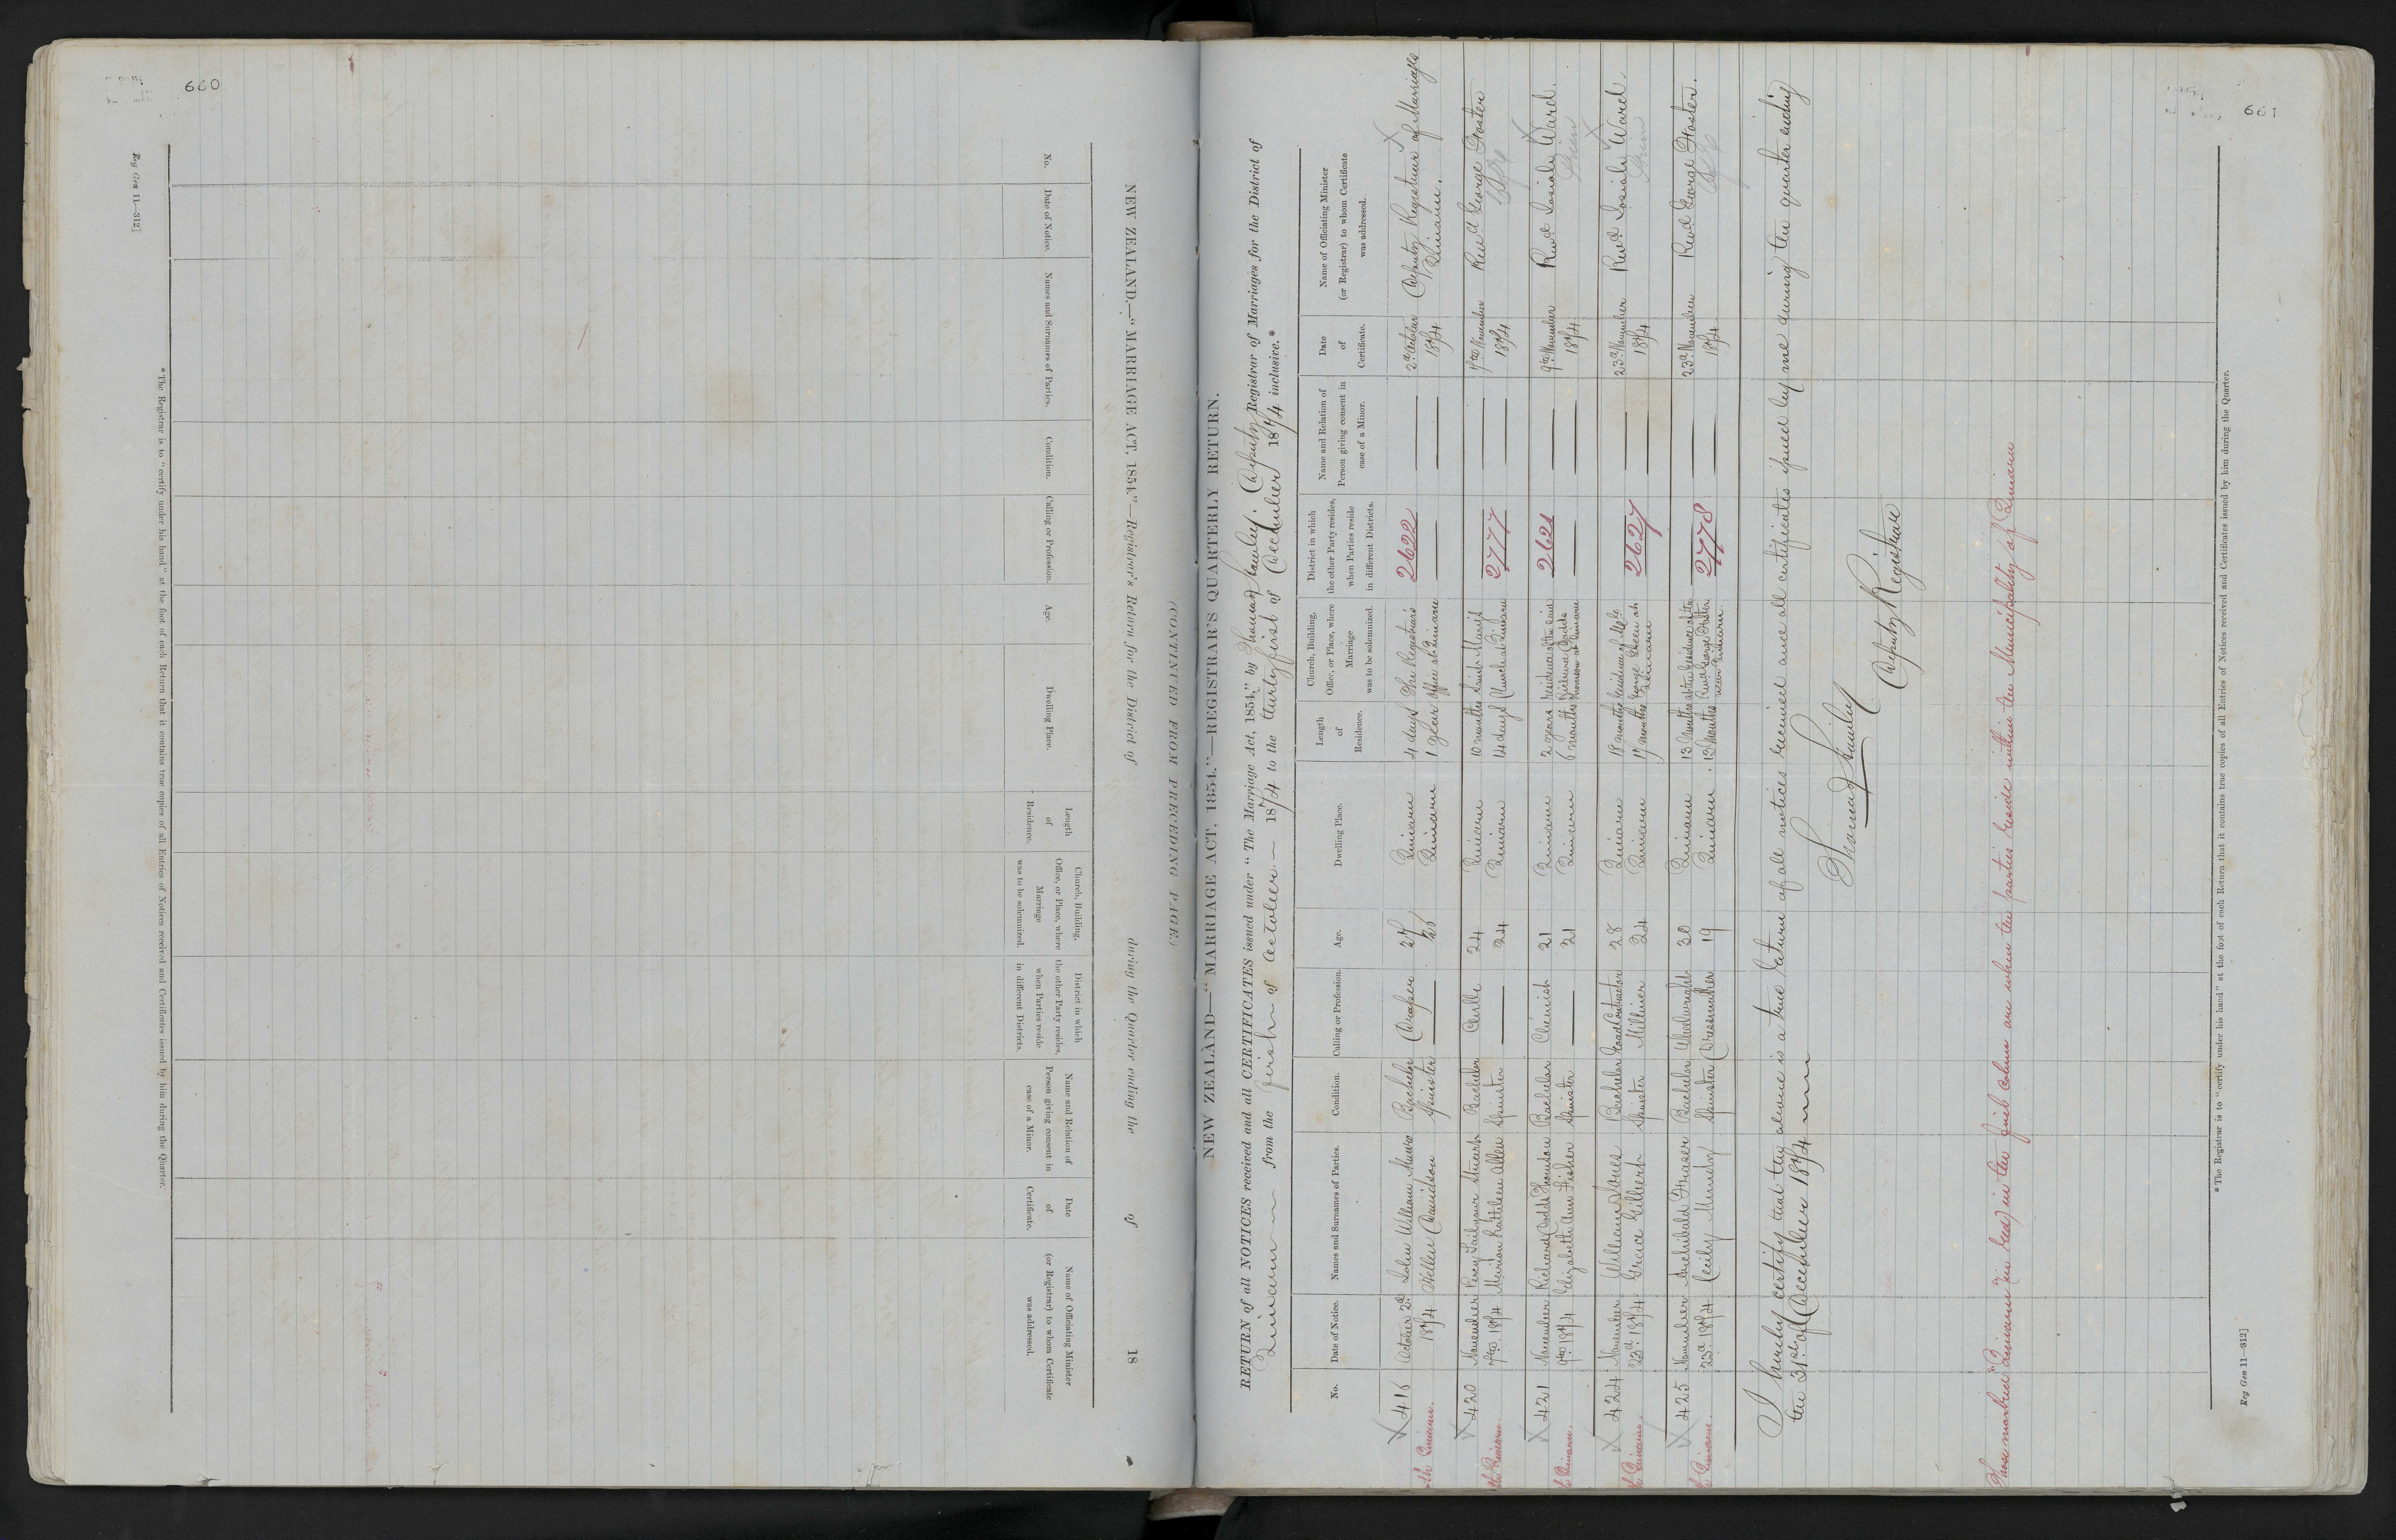 660
Reg Gen 11—312]
NEW ZEALAND.—"MARRIAGE ACT, 1854."—Registrar's Return for the District of during the Quarter ending the of 18
(CONTINUED FROM PRECEDING PAGE.)
No.
Date of Notice.
Names and Surnames of Parties.
Condition.
Calling or Profession.
Age.
Dwelling Place.
Length of Residence.
Church, Building, Office, or Place, where Marriage was to be solemnized.
District in which the other Party resides, when Parties reside in different Districts.
Name and Relation of Person giving consent in case of a Minor.
Date of Certificate.
Name of Officiating Minister (or Registrar) to whom Certificate was addressed.
* The Registrar is to "certify under his hand" at the foot of each Return that it contains true copies of all Entries of Notices received and Certificates issued by him during the Quarter.
661
NEW ZEALAND—"MARRIAGE ACT, 1854."—REGISTRAR'S QUARTERLY RETURN.
RETURN of all NOTICES received and all CERTIFICATES issued under "The Marriage Act, 1854," by Thomas Howley. Deputy Registrar of Marriages for the District of
Timaru from the first of October 1874 to the thirty first of December 1874 inclusive.*
No.
Date of Notice.
Names and Surnames of Parties.
Condition.
Calling or Profession.
Age.
Dwelling Place.
Length of Residence.
Church, Building, Office, or Place, where Marriage was to be solemnized.
District in which the other Party resides, when Parties reside in different Districts.
Name and Relation of Person giving consent in case of a Minor.
Date of Certificate.
Name of Officiating Minister (or Registrar) to whom Certificate was addressed.
416 October 2d John William Munro Bachelor Draper 27 Timaru 4 days The Registrar's 2622 2d October Deputy Registrar of Marriages
Timaru. 1874 Hellen Davidson Spinster 26 Timaru 1 year Office at Timaru 1874 Timaru.
420 November Percy Stuart Bachelor Clerk 24 Timaru 10 months Saint Mary's 2777 7th November Revd George Foster
Timaru. 7th 1874 Marion Allen Spinster 24 Timaru 14 days Church at Timaru 1874
421 November Richard Dodds Thomson Bachelor Chemist 21 Timaru 2 years residence of the said 2621 9th November Revd Josiah Ward.
Timaru. 9th 1874 Elizabeth Ann Fisher Spinster 21 Timaru 6 months Richard Dodds Thomson at Timaru 1874
424 November William Jones Bachelor Road Contractor 28 Timaru 18 months residence of Mr 2627 23d November Revd Josiah Ward
Timaru. 23d 1874 Grace Gilbert Spinster Milliner 24 Timaru 17 months George at Timaru 1874
425 November Archibald Fraser Bachelor Wheelwright 30 Timaru 13 Months at the residence of the 2778 23d November Revd George Foster.
Timaru. 23d 1874 Cecily Mundy Spinster Dressmaker 19 Timaru 13 Months Revd George Foster near Timaru. 1874
I hereby certify that the above is a true return of all notices received and all certificates issued by me during the quarter ending
the 31st of December 1874
Thomas Howley
Deputy Registrar
Those marked "Timaru" (in red) in the first column are when the parties reside within the Municipality of Timaru
* The Registrar is to "certify under his hand" at the foot of each Return that it contains true copies of all Entries of Notices received and Certificates issued by him during the Quarter.
Reg Gen 11—312]